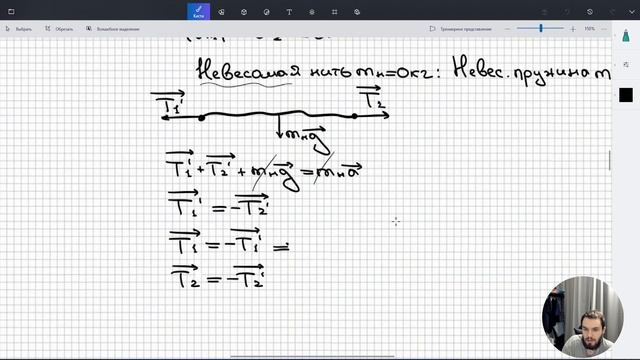 Кисти
Выбрать
Обрезать
Волшебное выделение
Трехмерное представление
150%
Невесомая нить mн=0кг: Невес. пружина m
T₁' T₂'
mнg
T₁' + T₂' + mнg = mнa
T₁' = −T₂'
T₁ = −T₁' =
T₂ = −T₂'